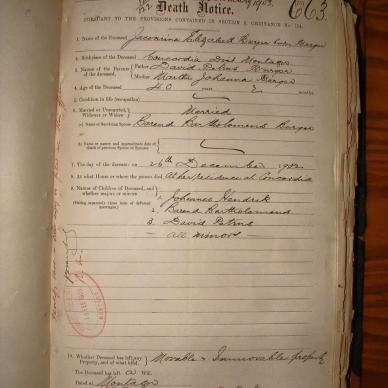 1903.
Death Notice.
663.
PURSUANT TO THE PROVISIONS CONTAINED IN SECTION 9, ORDINANCE No. 104.
1. Name of the Deceased Jacomina Elizabeth Burger born Burger
2. Birthplace of the Deceased Concordia Dist Montagu
3. Names of the Parents of the deceased. Father: David Petrus Burger
Mother: Martha Johanna Burger
4. Age of the Deceased 40 years 2 months
5. Condition in life (occupation)
6. Married or Unmarried, Widower or Widow Married
(a) Name of Surviving Spouse Barend Bartholomeus Burger
(b) Name or names and approximate date of death of previous Spouse or Spouses
7. The day of the decease: on 26th December 1902
8. At what House or where the person died At her residence at Concordia
9. Names of Children of Deceased, and whether majors or minors
(Stating separately those born of different marriages.)
1. Johannes Hendrik
2. Barend Bartholomeus
3. David Petrus
— all minors —
10. Whether Deceased has left ANY Property, and of what kind. Movable & Immovable property
The Deceased has left a Will.
Dated at Montagu